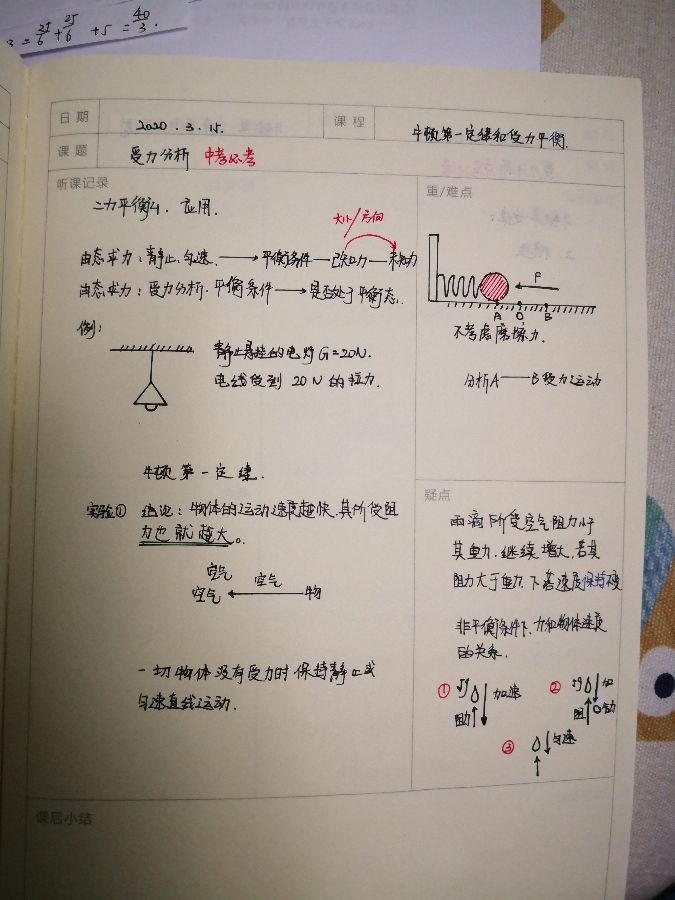 3 = 25/6 + 25/6 + 5 = 40/3.
日期 2020.3.15. 课程 牛顿第一定律和受力平衡.
课题 受力分析 中考必考
听课记录
二力平衡 应用.
大小/方向
由态求力：静止.匀速.→平衡条件—已知力—未知力
由态求力：受力分析.平衡条件→是否处于平衡态.
例：
静止悬挂的电灯G=20N.
电线受到20N的拉力.
牛顿第一定律.
实验① 结论：物体的运动速度越快.其所受阻
力也就越大。
空气
空气 空气
物
一切物体没有受力时保持静止或
匀速直线运动.
重/难点
F
A O B
不考虑摩擦力.
分析A——B受力运动
疑点
雨滴所受空气阻力小于
其重力.继续增大.若其
阻力大于重力.下落速度保持不变
非平衡条件下.力和物体速度
的关系.
① 加速
阻
② 加
阻
③ 匀速
课后小结